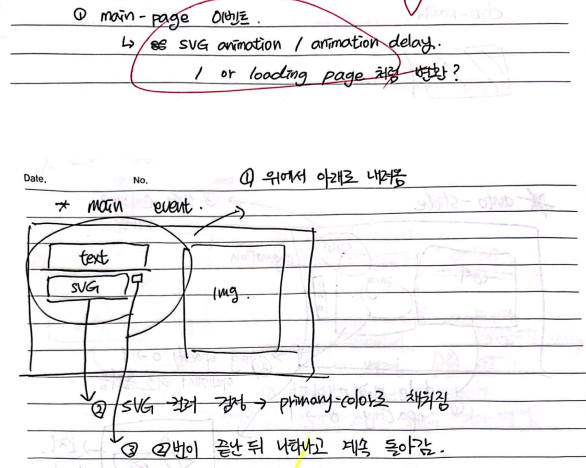 ① main-page 이벤트.
↳ SVG animation / animation delay.
/ or loading page 처럼 변환?
Date. No.
① 위에서 아래로 내려옴
* main event.
text
SVG
img.
② SVG 컬러 검정 → primary-color로 채워짐
③ ②번이 끝난 뒤 나타나고 계속 돌아감.